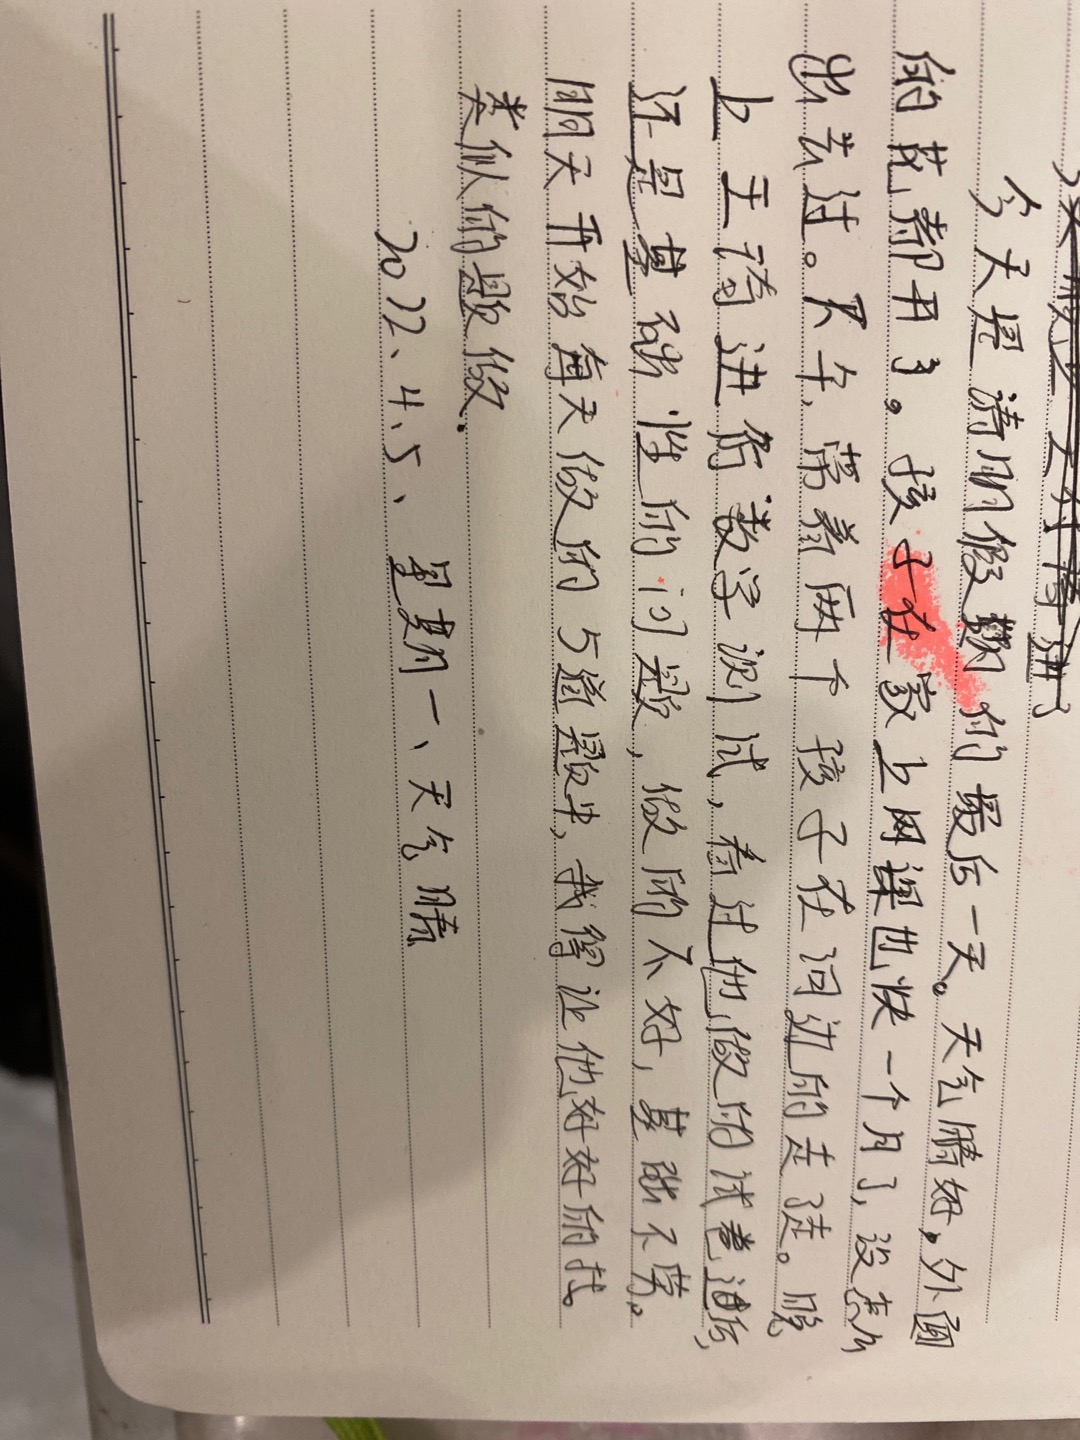 今天是清明假期的最后一天。天气晴好，外面
的花都开了。孩子在家上网课也快一个月了，没怎么
出去过。下午，带着两个孩子在河边的走走。晚
上王琦进行数学测试，看过他做的试卷过后，
还是基础性的问题，做的不好，基础不劳。
明天开始每天做的5道题中，我得让他好好的找
类似的题做.
2022、4、5、星期一、天气晴